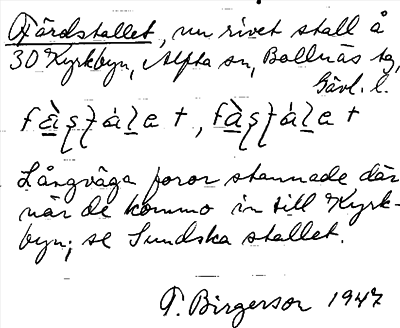 Färdstallet, nu rivet stall å
30 Kyrkbyn, Alfta sn, Bollnäs tg,
Gävl. l.
Långväga foror stannade där
när de kommo in till Kyrk-
byn; se Sundska stallet.
T. Birgerson 1947